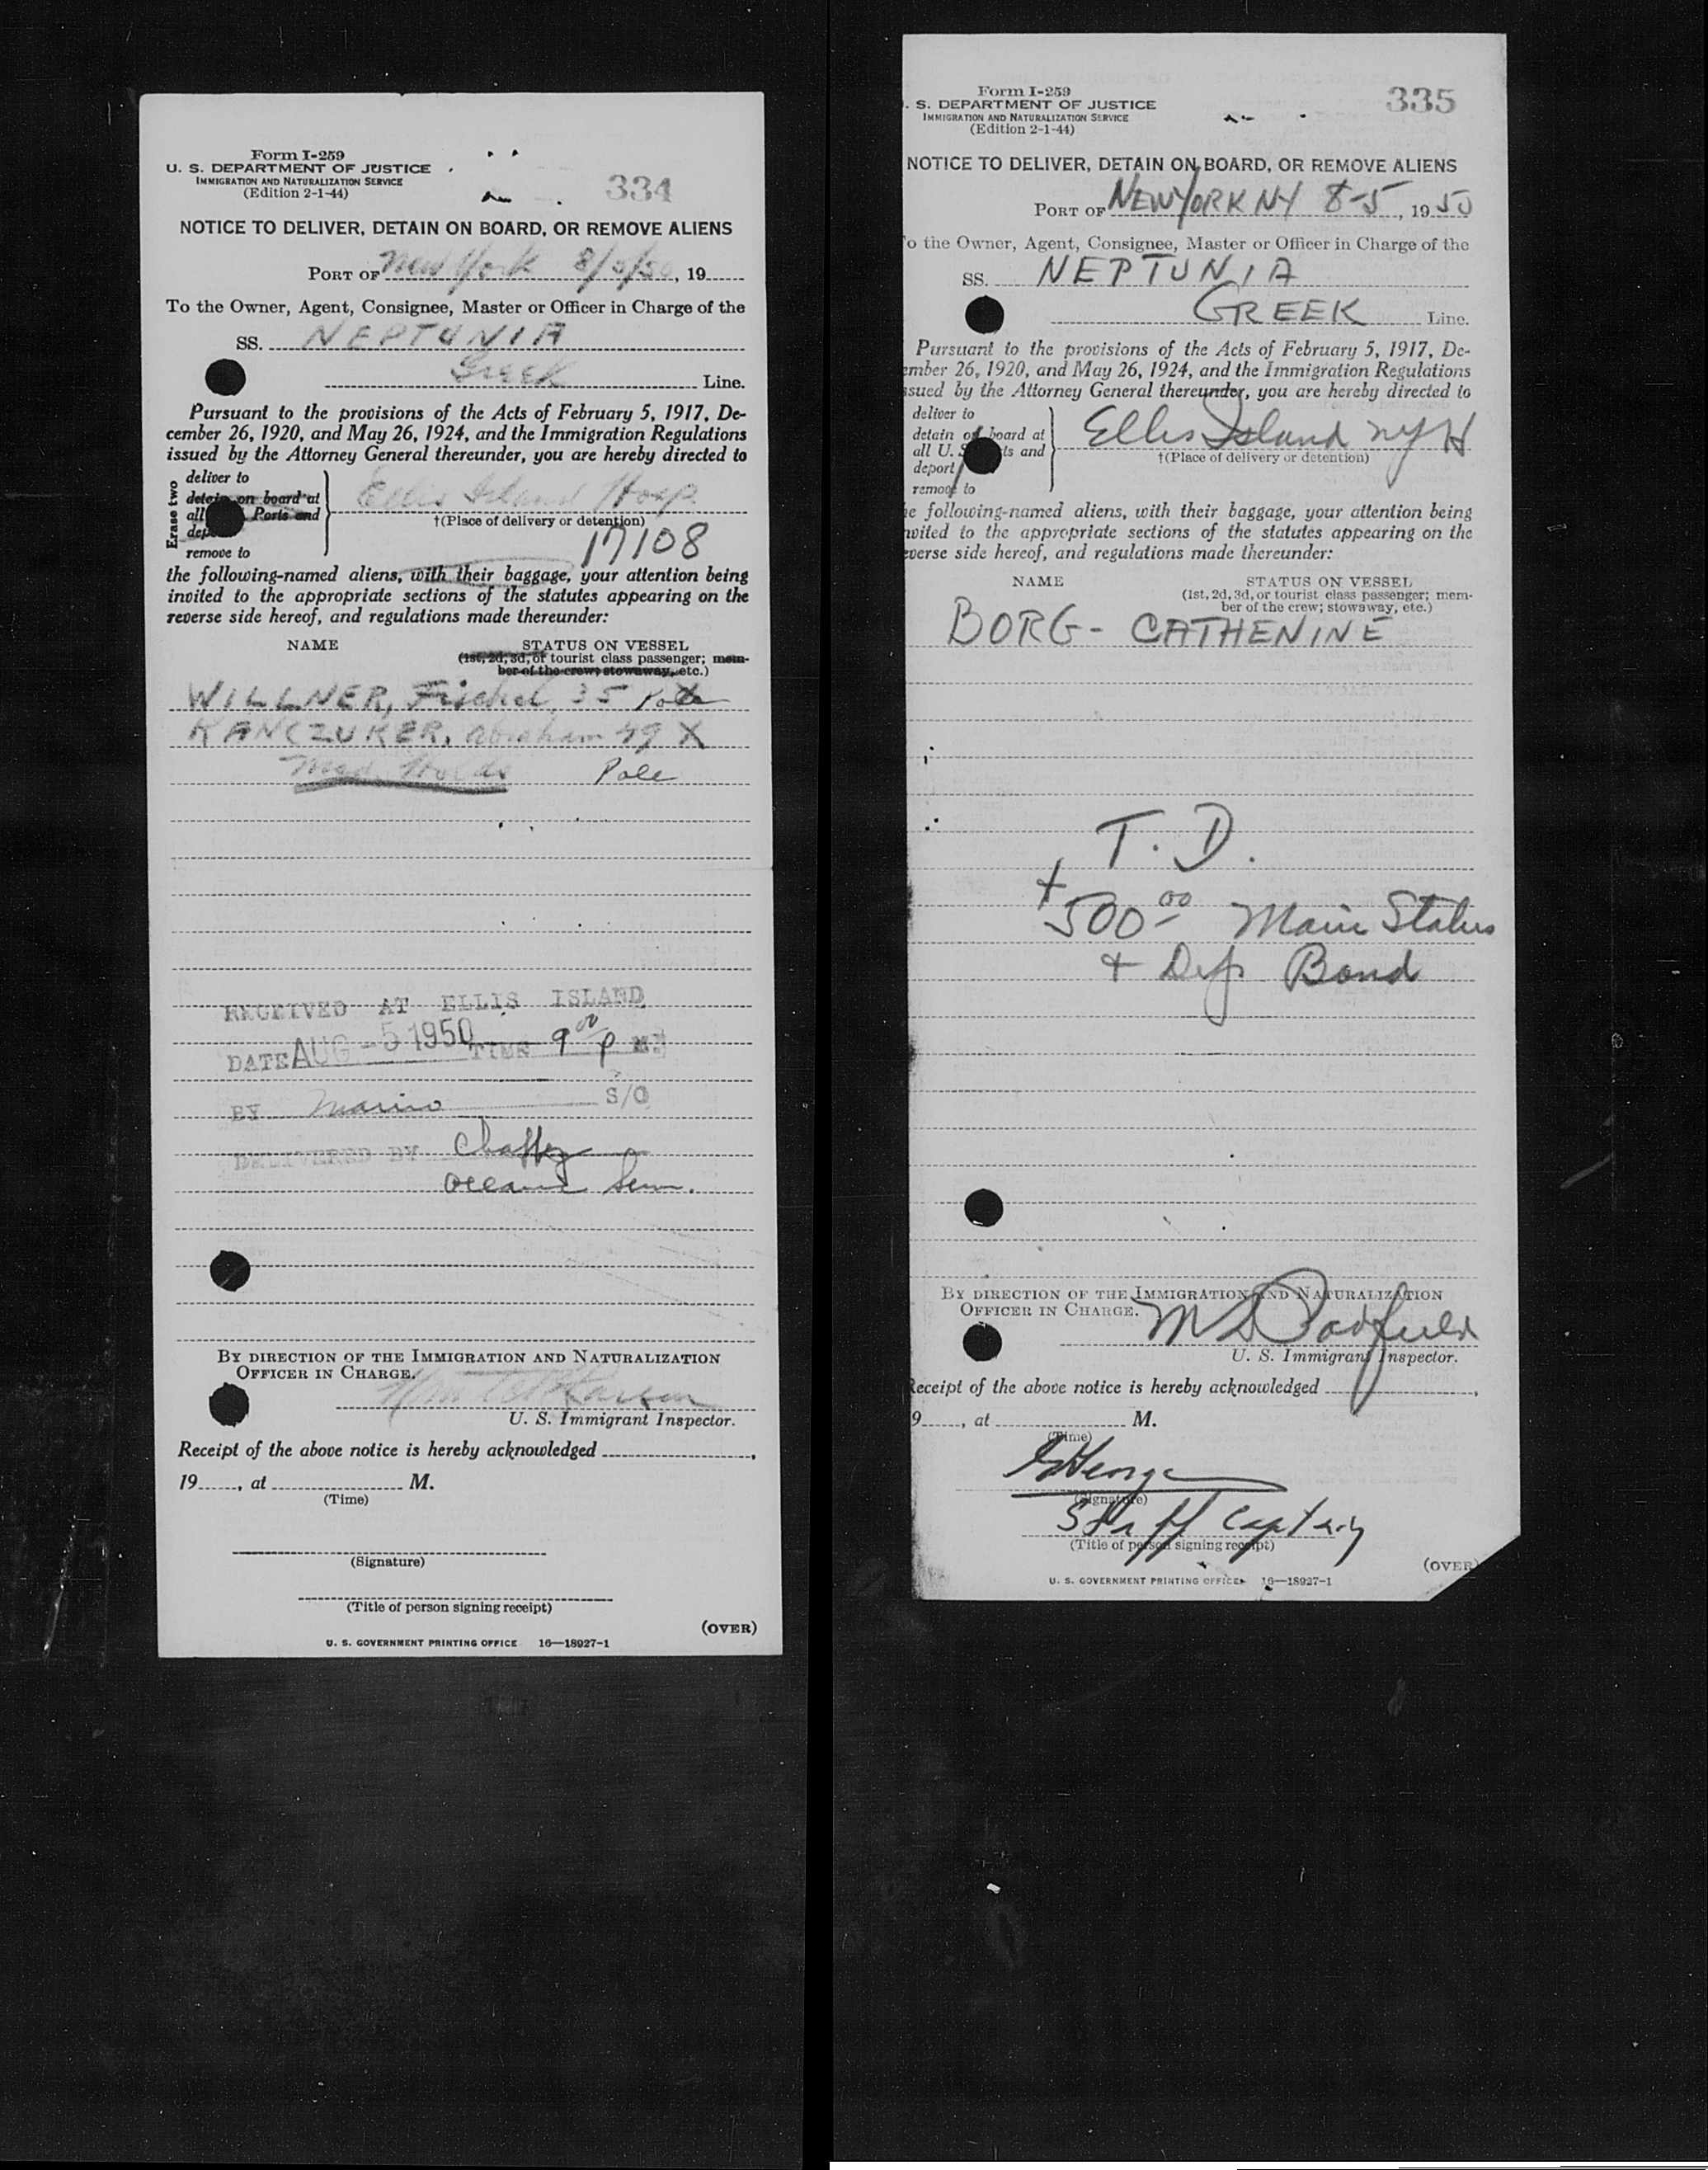 Form I-259
U. S. DEPARTMENT OF JUSTICE
IMMIGRATION AND NATURALIZATION SERVICE
(Edition 2-1-44)
334
NOTICE TO DELIVER, DETAIN ON BOARD, OR REMOVE ALIENS
PORT OF New York 8/5/50, 19
To the Owner, Agent, Consignee, Master or Officer in Charge of the
SS. NEPTUNIA
Greek Line.
Pursuant to the provisions of the Acts of February 5, 1917, De-
cember 26, 1920, and May 26, 1924, and the Immigration Regulations
issued by the Attorney General thereunder, you are hereby directed to
Erase two
deliver to
detain on board at
all Ports and
remove to
Ellis Island Hosp
†(Place of delivery or detention)
17108
the following-named aliens, with their baggage, your attention being
invited to the appropriate sections of the statutes appearing on the
reverse side hereof, and regulations made thereunder:
NAME STATUS ON VESSEL
(1st, 2d, 3d, or tourist class passenger; mem-
ber of the crew; stowaway, etc.)
WILLNER, Fischel, 35 Pole X
KANCZUKER, Abraham 49 X
Med. Holds Pole
RECEIVED AT ELLIS ISLAND
DATE AUG -5 1950 TIME 9 00 P M
BY Marino S/O
DELIVERED BY Chaffey
Oceanic Serv.
BY DIRECTION OF THE IMMIGRATION AND NATURALIZATION
OFFICER IN CHARGE.
U. S. Immigrant Inspector.
Receipt of the above notice is hereby acknowledged ,
19 , at M.
(Time)
(Signature)
(Title of person signing receipt)
(OVER)
U. S. GOVERNMENT PRINTING OFFICE 16—18927-1
Form I-259
. S. DEPARTMENT OF JUSTICE
IMMIGRATION AND NATURALIZATION SERVICE
(Edition 2-1-44)
335
NOTICE TO DELIVER, DETAIN ON BOARD, OR REMOVE ALIENS
PORT OF NEW YORK NY 8-5, 1950
o the Owner, Agent, Consignee, Master or Officer in Charge of the
SS. NEPTUNIA
GREEK Line.
Pursuant to the provisions of the Acts of February 5, 1917, De-
ember 26, 1920, and May 26, 1924, and the Immigration Regulations
ssued by the Attorney General thereunder, you are hereby directed to
deliver to
detain on board at
all U. S. and
deport
remove to
Ellis Island NYH
†(Place of delivery or detention)
e following-named aliens, with their baggage, your attention being
nvited to the appropriate sections of the statutes appearing on the
everse side hereof, and regulations made thereunder:
NAME STATUS ON VESSEL
(1st, 2d, 3d, or tourist class passenger; mem-
ber of the crew; stowaway, etc.)
BORG - CATHENINE
T. D.
+
500 00 Main Status
+ Dep Bond
BY DIRECTION OF THE IMMIGRATION AND NATURALIZATION
OFFICER IN CHARGE.
M D Padfield
U. S. Immigrant Inspector.
Receipt of the above notice is hereby acknowledged ,
9 , at M.
(Time)
(Signature)
Staff Captain
(Title of person signing receipt)
(OVER)
U. S. GOVERNMENT PRINTING OFFICE 16—18927-1